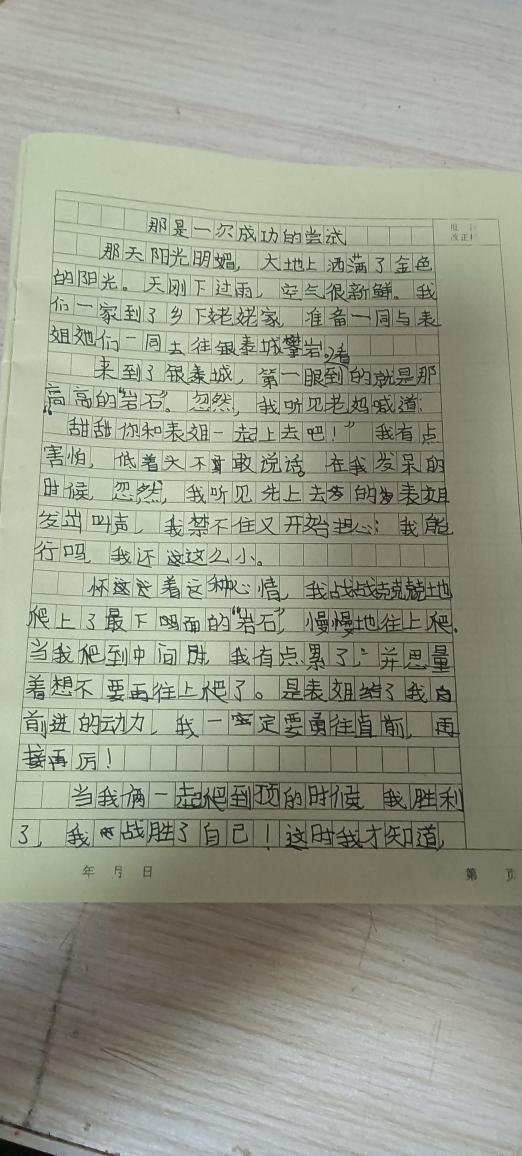 那是一次成功的尝试
批
改正栏
那天阳光明媚，大地上洒满了金色
的阳光。天刚下过雨，空气很新鲜。我
们一家到了乡下姥姥家，准备一同与表
姐她们一同去往银泰城攀岩。
来到了银泰城，第一眼看到的就是那
高高的“岩石”。忽然，我听见老妈喊道：
“甜甜你和表姐一起上去吧！”我有点
害怕，低着头不敢说话。在我发呆的
时候，忽然，我听见先上去的表姐
发出叫声，我禁不住又开始担心：我能
行吗，我还这么小。
怀着这种心情，我战战兢兢地
爬上了最下面的“岩石”，慢慢地往上爬。
当我爬到中间时，我有点累了，并思量
着想不要再往上爬了。是表姐给了我向
前进的动力，我一定要勇往直前，再
接再厉！
当我俩一起爬到顶的时候，我胜利
了，我战胜了自己！这时我才知道，
年 月 日
第 页